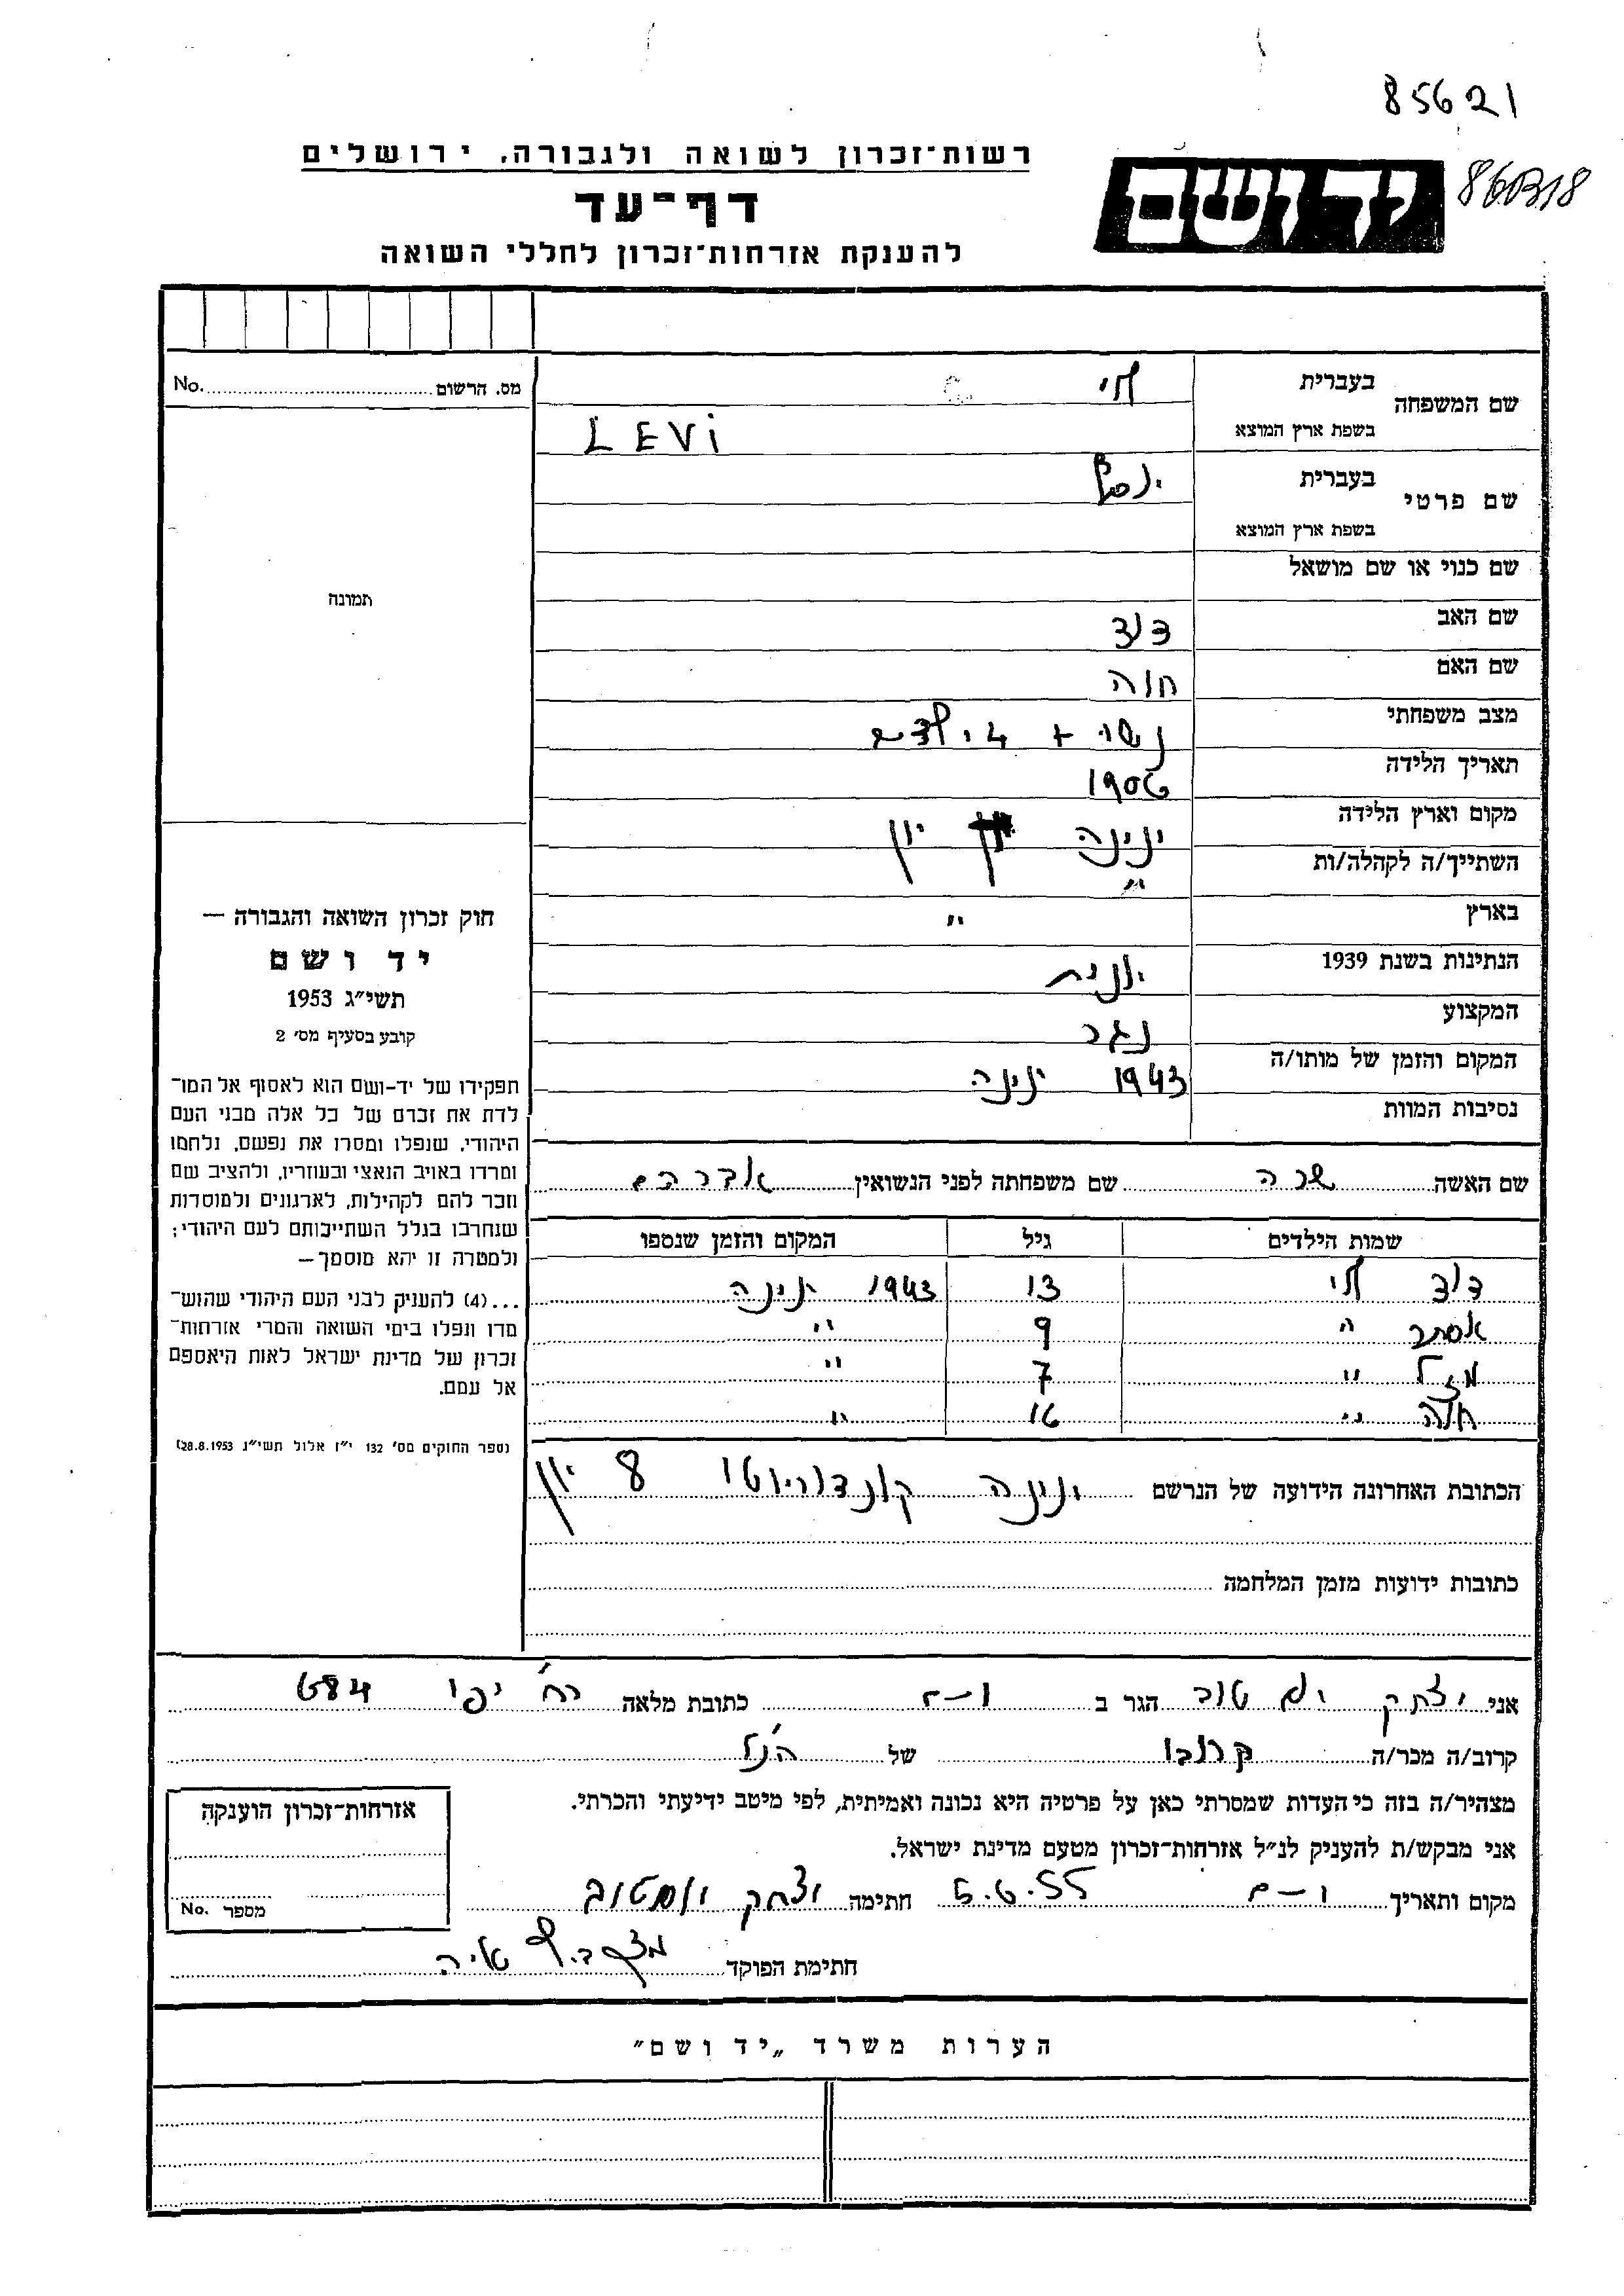 85621
86B18
רשות־זכרון לשואה ולגבורה. ירושלים
ידושם
דף־עד
להענקת אזרחות־זכרון לחללי השואה
מס. הרשום No.
שם המשפחה בעברית לוי
בשפת ארץ המוצא LEVi
שם פרטי בעברית יוסף
בשפת ארץ המוצא
שם כנוי או שם מושאל
שם האב דוד
שם האם חוה
מצב משפחתי נשוי + 4 ילדים
תאריך הלידה 1906
מקום וארץ הלידה ינינה יון
השתייך/ה לקהלה/ות "
בארץ "
הנתינות בשנת 1939 יוונית
המקצוע נגר
המקום והזמן של מותו/ה 1943 ינינה
נסיבות המוות
שם האשה שרה שם משפחתה לפני הנשואין אברהם
שמות הילדים גיל המקום והזמן שנספו
דוד לוי 13 1943 ינינה
אסתר " 9 "
מזל " 7 "
חוה " 16 "
הכתובת האחרונה הידועה של הנרשם ינינה קונדוריוטי 8 יון
כתובות ידועות מזמן המלחמה
תמונה
חוק זכרון השואה והגבורה —
יד ושם
תשי״ג 1953
קובע בסעיף מס׳ 2
תפקידו של יד-ושם הוא לאסוף אל המו־
לדת את זכרם של כל אלה מבני העם
היהודי, שנפלו ומסרו את נפשם, נלחמו
ומרדו באויב הנאצי ובעוזריו, ולהציב שם
וזכר להם לקהילות, לארגונים ולמוסדות
שנחרבו בגלל השתייכותם לעם היהודי;
ולמטרה זו יהא מוסמך—
...(4) להעניק לבני העם היהודי שהוש־
מדו ונפלו בימי השואה והמרי אזרחות־
זכרון של מדינת ישראל לאות היאספם
אל עמם.
(ספר החוקים מס׳ 132 י״ז אלול תשי״ג 28.8.1953)
אני יצחק יום טוב הגר ב כתובת מלאה רח' יפו
קרוב/ה מכר/ה קרובו של הנ"ל
מצהיר/ה בזה כי העדות שמסרתי כאן על פרטיה היא נכונה ואמיתית, לפי מיטב ידיעתי והכרתי.
אני מבקש/ת להעניק לנ״ל אזרחות־זכרון מטעם מדינת ישראל.
מקום ותאריך 5.6.55 חתימה יצחק יומטוב
חתימת הפוקד
אזרחות־זכרון הוענקה
מספר No.
הערות משרד „יד ושם״